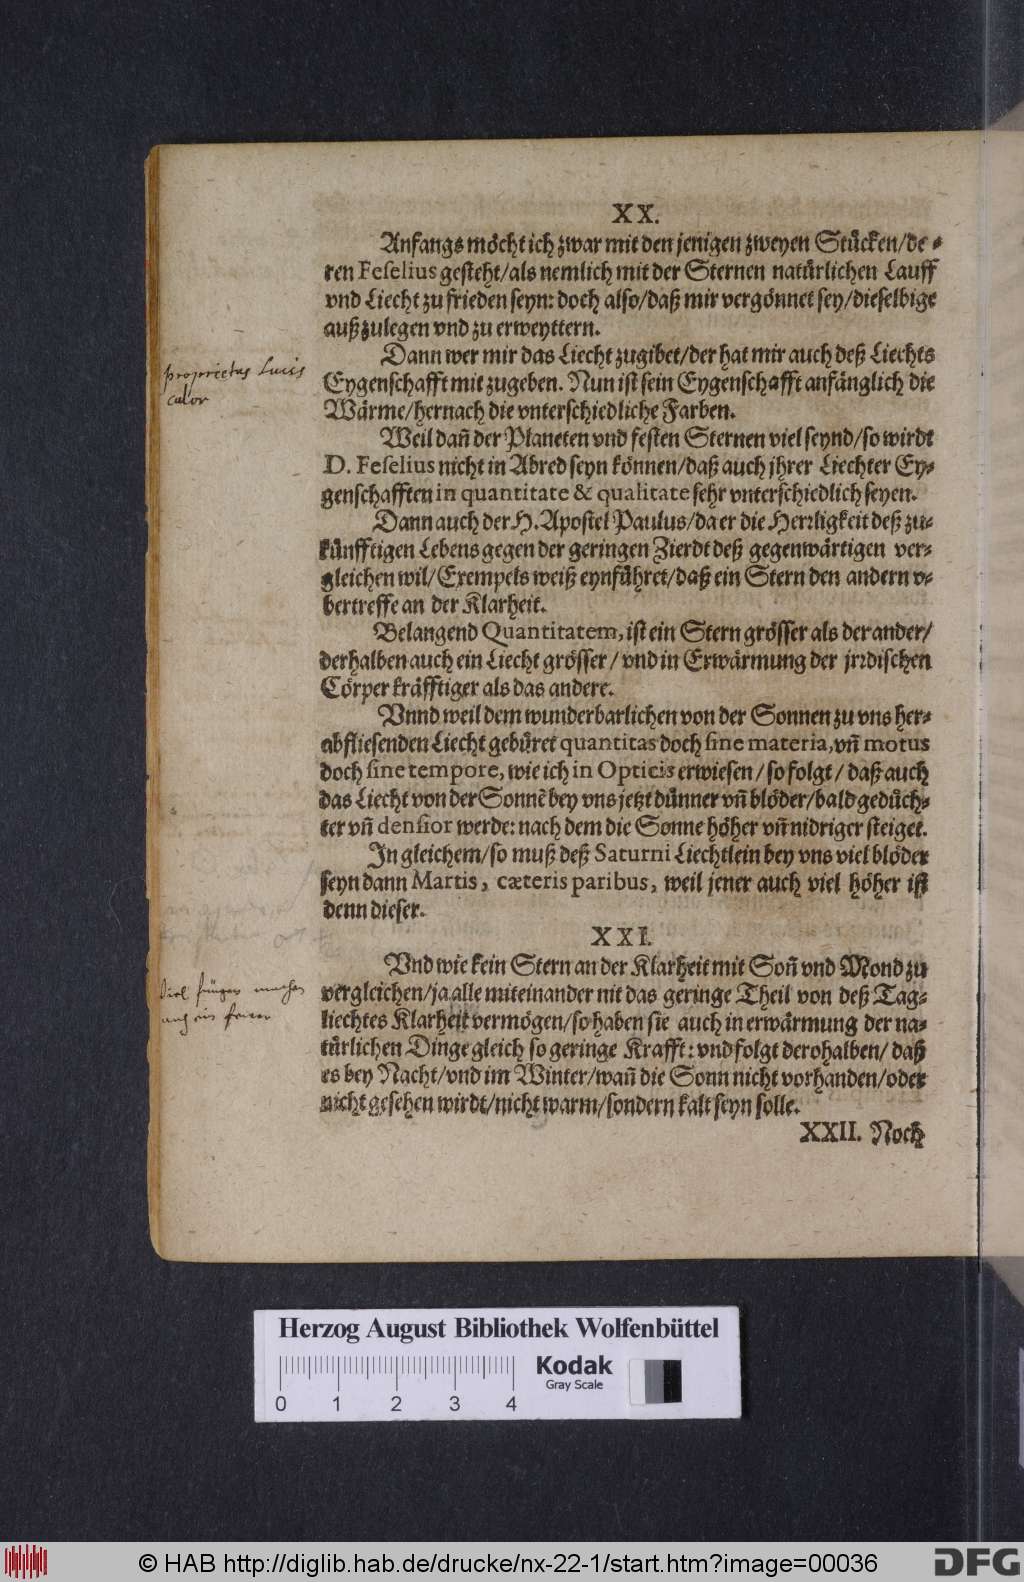 XX.
Anfangs möcht ich zwar mit den jenigen zweyen Stücken/de-
ren Feſelius gesteht/als nemlich mit der Sternen natürlichen Lauff
vnd Liecht zu frieden seyn: doch also/daß mir vergönnet sey/dieselbige
außzulegen vnd zu erweyttern.
Dann wer mir das Liecht zugibet/der hat mir auch deß Liechts
proprietas Lucis
Eygenschafft mit zugeben. Nun ist sein Eygenschafft anfänglich die
calor
Wärme/hernach die vnterschiedliche Farben.
Weil dañ der Planeten vnd festen Sternen viel seynd/so wirdt
D. Feſelius nicht in Abred seyn können/daß auch jhrer Liechter Ey-
genschafften in quantitate & qualitate sehr vnterschiedlich seyen.
Dann auch der H. Apostel Paulus/da er die Herꝛligkeit deß zu-
künfftigen Lebens gegen der geringen Zierdt deß gegenwärtigen ver-
gleichen wil/Exempels weiß eynführet/daß ein Stern den andern v-
bertreffe an der Klarheit.
Belangend Quantitatem, ist ein Stern grösser als der ander/
derhalben auch ein Liecht grösser/ vnd in Erwärmung der jrꝛdischen
Cörper kräfftiger als das andere.
Vnnd weil dem wunderbarlichen von der Sonnen zu vns her-
abfliesenden Liecht gebüret quantitas doch ſine materia, vñ motus
doch ſine tempore, wie ich in Opticis erwiesen/so folgt/ daß auch
das Liecht von der Sonnẽ bey vns jetzt dünner vñ blöder/bald gedüch-
ter vñ denſior werde: nach dem die Sonne höher vñ nidriger steiget.
In gleichem/so muß deß Saturni Liechtlein bey vns viel blöder
seyn dann Martis, cæteris paribus, weil jener auch viel höher ist
denn dieser.
XXI.
Vnd wie kein Stern an der Klarheit mit Soñ vnd Mond zu
Viel
vergleichen/ja alle miteinander nit das geringe Theil von deß Tag-
auch ein
liechtes Klarheit vermögen/so haben sie auch in erwärmung der na-
türlichen Dinge gleich so geringe Krafft: vnd folgt derohalben/ daß
es bey Nacht/vnd im Winter/wañ die Sonn nicht vorhanden/oder
nicht gesehen wirdt/nicht warm/sondern kalt seyn solle.
XXII. Noch
Herzog August Bibliothek Wolfenbüttel
Kodak
Gray Scale
0 1 2 3 4
© HAB http://diglib.hab.de/drucke/nx-22-1/start.htm?image=00036
DFG